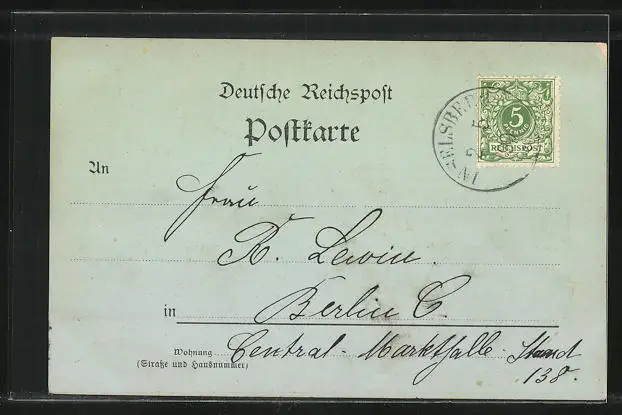 Deutsche Reichspost
Postkarte
5
PFENNIG
REICHSPOST
INSELSBERG
An Frau
R. Lewin.
in Berlin C.
Wohnung Central-Markthalle Stand
(Straße und Hausnummer)
138.